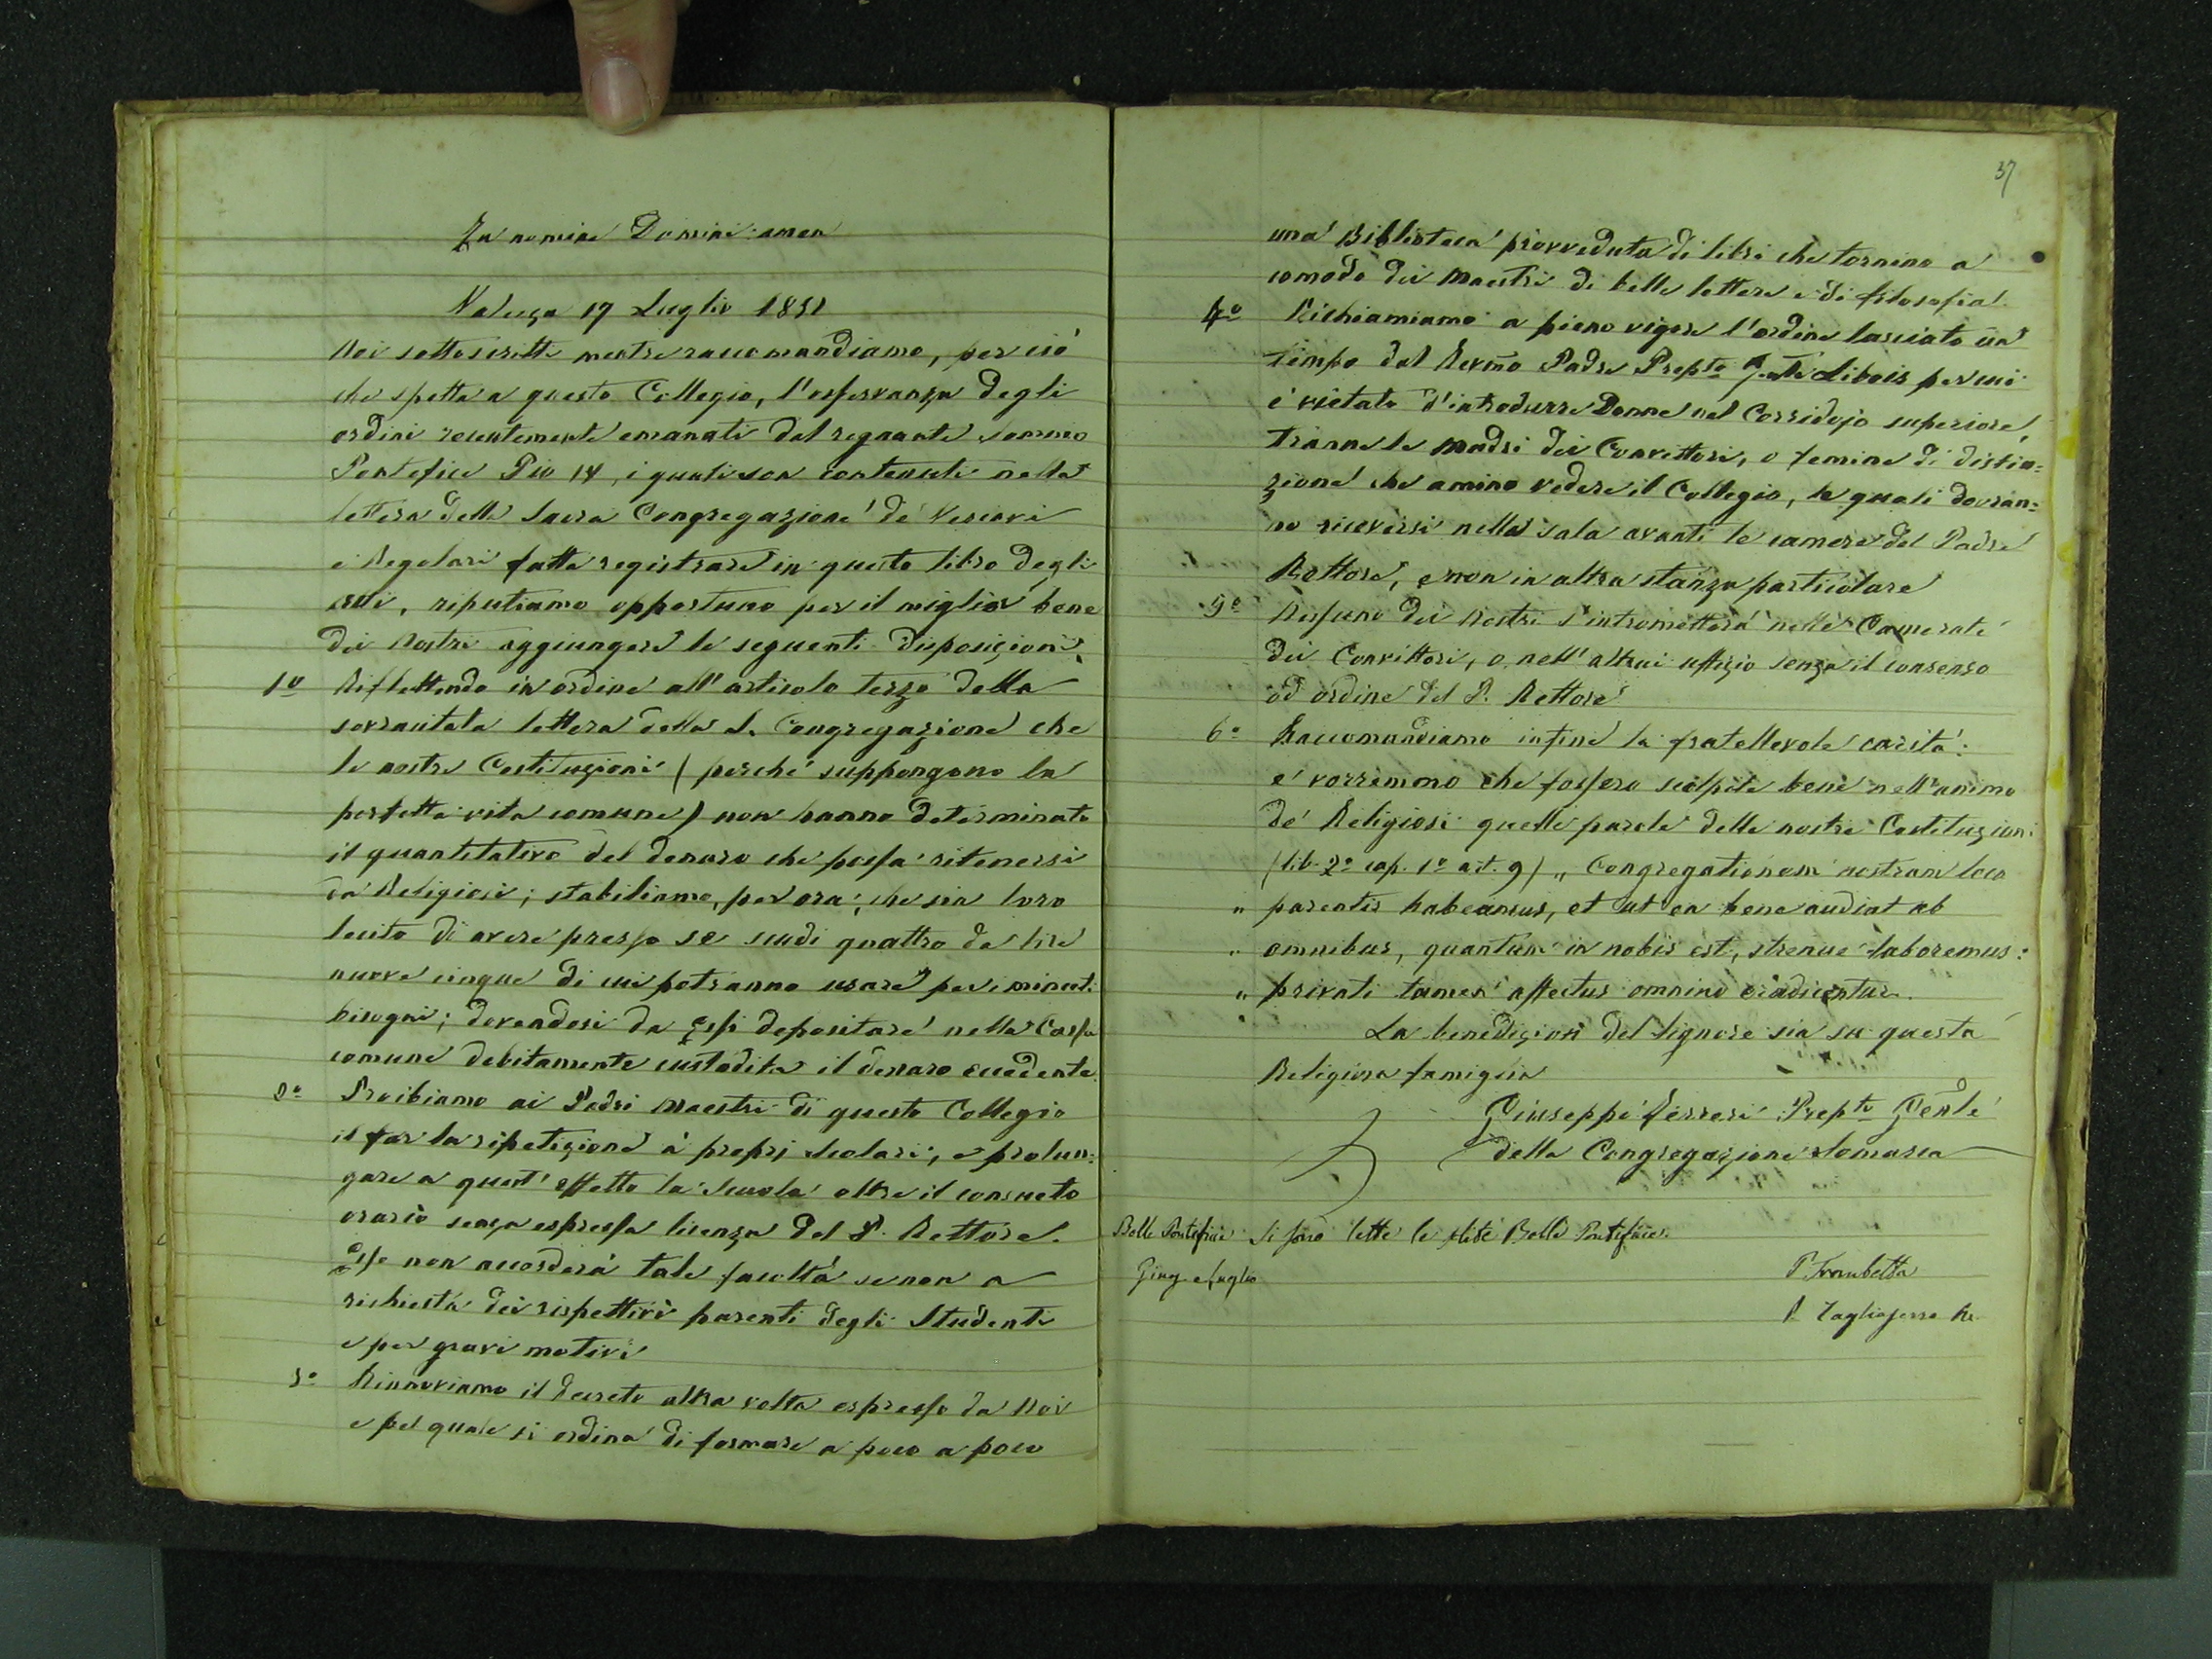 In nomine Domini amen
Valenza 17 Luglio 1851
Noi sottoscritti mentre raccomandiamo, per ciò
che spetta a questo Collegio, l'osservanza degli
ordini recentemente emanati dal regnante sommo
Pontefice Pio IX, i quali son contenuti nella
lettera della Sacra Congregazione de' Vescovi
e Regolari fatta registrare in questo libro degli
atti, riputiamo opportuno per il miglior bene
dei Nostri aggiungere le seguenti disposizioni.
1º Riflettendo in ordine all'articolo terzo della
sovracitata lettera della S. Congregazione che
le nostre Costituzioni (perché suppongono la
perfetta vita comune) non hanno determinato
il quantitativo del denaro che possa ritenersi
da' Religiosi; stabiliamo, per ora, che sia loro
lecito di avere presso se scudi quattro da lire
nuove cinque di cui potranno usare per i minuti
bisogni; dovendosi da Essi depositare nella Cassa
comune debitamente custodita il denaro eccedente.
2º Proibiamo ai Padri Maestri di questo Collegio
il far la ripetizione a' proprj Scolari, e prolun=
gare a quest'effetto la Scuola oltre il consueto
orario senza espressa licenza del P. Rettore.
Esso non accorderà tale facoltà se non a
richiesta dei rispettivi parenti degli Studenti
e per gravi motivi
3º Rinnoviamo il decreto altra volta espresso da Noi
e pel quale si ordina di formare a poco a poco
37
una Biblioteca provveduta di libri che tornino a
comodo dei Maestri di belle lettere e di filosofia.
4º Richiamiamo a pieno vigore l'ordine lasciato un
tempo dal Revmo Padre Prepto Gente Libois per cui
è vietato d'introdurre Donne nel Corridojo superiore,
tranne le Madri dei Convittori, o femine di distin=
zione che amino vedere il Collegio, le quali dovran=
no riceversi nella sala avanti le camere del Padre
Rettore, e non in altra stanza particolare
5º Nessuno dei Nostri s'intrometterà nelle Camerate
dei Convittori, o nell'altrui uffizio senza il consenso
od ordine del P. Rettore
6º Raccomandiamo infine la fratellevole carità:
e vorremmo che fossero scolpite bene nell'animo
de' Religiosi quelle parole delle nostre Costituzioni
(lib. 2º cap. 1º art. 9) „ Congregationem nostram loco
„ parentis habeamus, et ut ea bene audiat ab
„ omnibus, quantum in nobis est, strenue laboremus:
„ privati tamen affectus omnino eradicentur.
La benedizion del Signore sia su questa
Religiosa famiglia
Giuseppe Ferreri Prepto Genle
della Congregazione Somasca
Bolle Pontificie Si sono lette le solite Bolle Pontificie.
Giug. e Luglio P. Trombetta
P. Tagliaferro Re